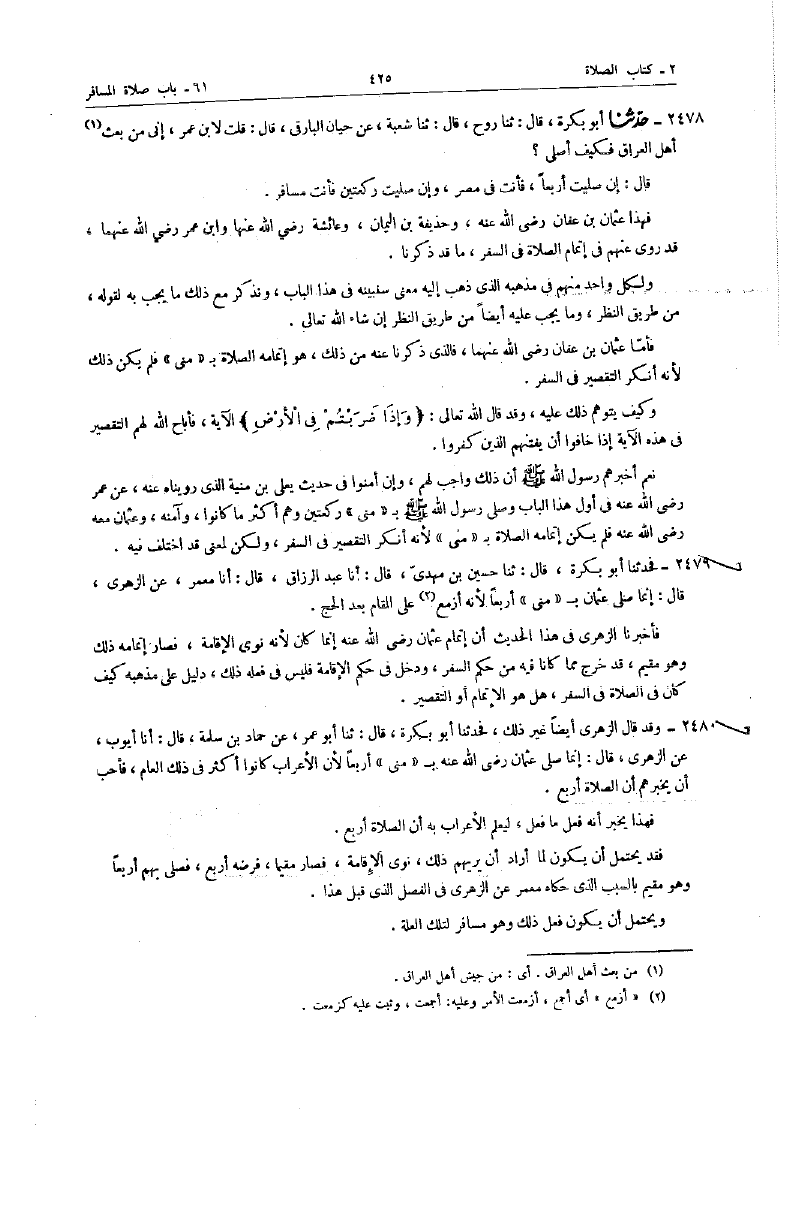 ٢ - كتاب الصلاة ٤٢٥ ٦١ - باب صلاة المسافر
٢٤٧٨ - حدثنا أبو بكرة ، قال : ثنا روح ، قال : ثنا شعبة ، عن حيان البارقى ، قال : قلت لابن عمر ، إنى من بعث(١)
أهل العراق فكيف أصلى ؟
قال : إن صليت أربعاً ، فأنت فى مصر ، وإن صليت ركعتين فأنت مسافر .
فهذا عثمان بن عفان رضى الله عنه ، وحذيفة بن اليمان ، وعائشة رضي الله عنها وابن عمر رضي الله عنهما ،
قد روى عنهم فى إتمام الصلاة فى السفر ، ما قد ذكرنا .
ولكل واحد منهم فى مذهبه الذى ذهب إليه معنى سنبينه فى هذا الباب ، ونذكر مع ذلك ما يجب به لقوله ،
من طريق النظر ، وما يجب عليه أيضاً من طريق النظر إن شاء الله تعالى .
فأما عثمان بن عفان رضى الله عنهما ، فالذى ذكرنا عنه من ذلك ، هو إتمامه الصلاة بـ « منى » فلم يكن ذلك
لأنه أنكر التقصير فى السفر .
وكيف يتوهم ذلك عليه ، وقد قال الله تعالى : ﴿ وَإِذَا ضَرَبْتُمْ فِى الْأَرْضِ ﴾ الآية ، فأباح الله لهم التقصير
فى هذه الآية إذا خافوا أن يفتنهم الذين كفروا .
نعم أخبرهم رسول الله ﷺ أن ذلك واجب لهم ، وإن أمنوا فى حديث يعلى بن منية الذى رويناه عنه ، عن عمر
رضى الله عنه فى أول هذا الباب وصلى رسول الله ﷺ بـ « منى » ركعتين وهم أكثر ما كانوا ، وآمنه ، وعثمان معه
رضى الله عنه فلم يكن إتمامه الصلاة بـ « منى » لأنه أنكر التقصير فى السفر ، ولكن لمعنى قد اختلف فيه .
٢٤٧٩ - فحدثنا أبو بكرة ، قال : ثنا حسين بن مهدىّ ، قال : أنا عبد الرزاق ، قال : أنا معمر ، عن الزهرى ،
قال : إنما صلى عثمان بـ « منى » أربعاً لأنه أزمع(٢) على المقام بعد الحج .
فأخبرنا الزهرى فى هذا الحديث أن إتمام عثمان رضى الله عنه إنما كان لأنه نوى الإقامة ، فصار إتمامه ذلك
وهو مقيم ، قد خرج مما كانا فيه من حكم السفر ، ودخل فى حكم الإقامة فليس فى فعله ذلك ، دليل على مذهبه كيف
كان فى الصلاة فى السفر ، هل هو الإتمام أو التقصير .
٢٤٨٠ - وقد قال الزهرى أيضاً غير ذلك ، فحدثنا أبو بكرة ، قال : ثنا أبو عمر ، عن حماد بن سلمة ، قال : أنا أيوب ،
عن الزهرى ، قال : إنما صلى عثمان رضى الله عنه بـ « منى » أربعاً لأن الأعراب كانوا أكثر فى ذلك العام ، فأحب
أن يخبرهم أن الصلاة أربع .
فهذا يخبر أنه فعل ما فعل ، ليعلم الأعراب به أن الصلاة أربع .
فقد يحتمل أن يكون لما أراد أن يريهم ذلك ، نوى الإقامة ، فصار مقيما ، فرضه أربع ، فصلى بهم أربعاً
وهو مقيم بالسبب الذى حكاه معمر عن الزهرى فى الفصل الذى قبل هذا .
ويحتمل أن يكون فعل ذلك وهو مسافر لتلك العلة .
(١) من بعث أهل العراق . أى : من جيش أهل العراق .
(٢) « أزمع » أى أجمع ، أزمعت الأمر وعليه: أجمعت ، وثبت عليه كزمعت .